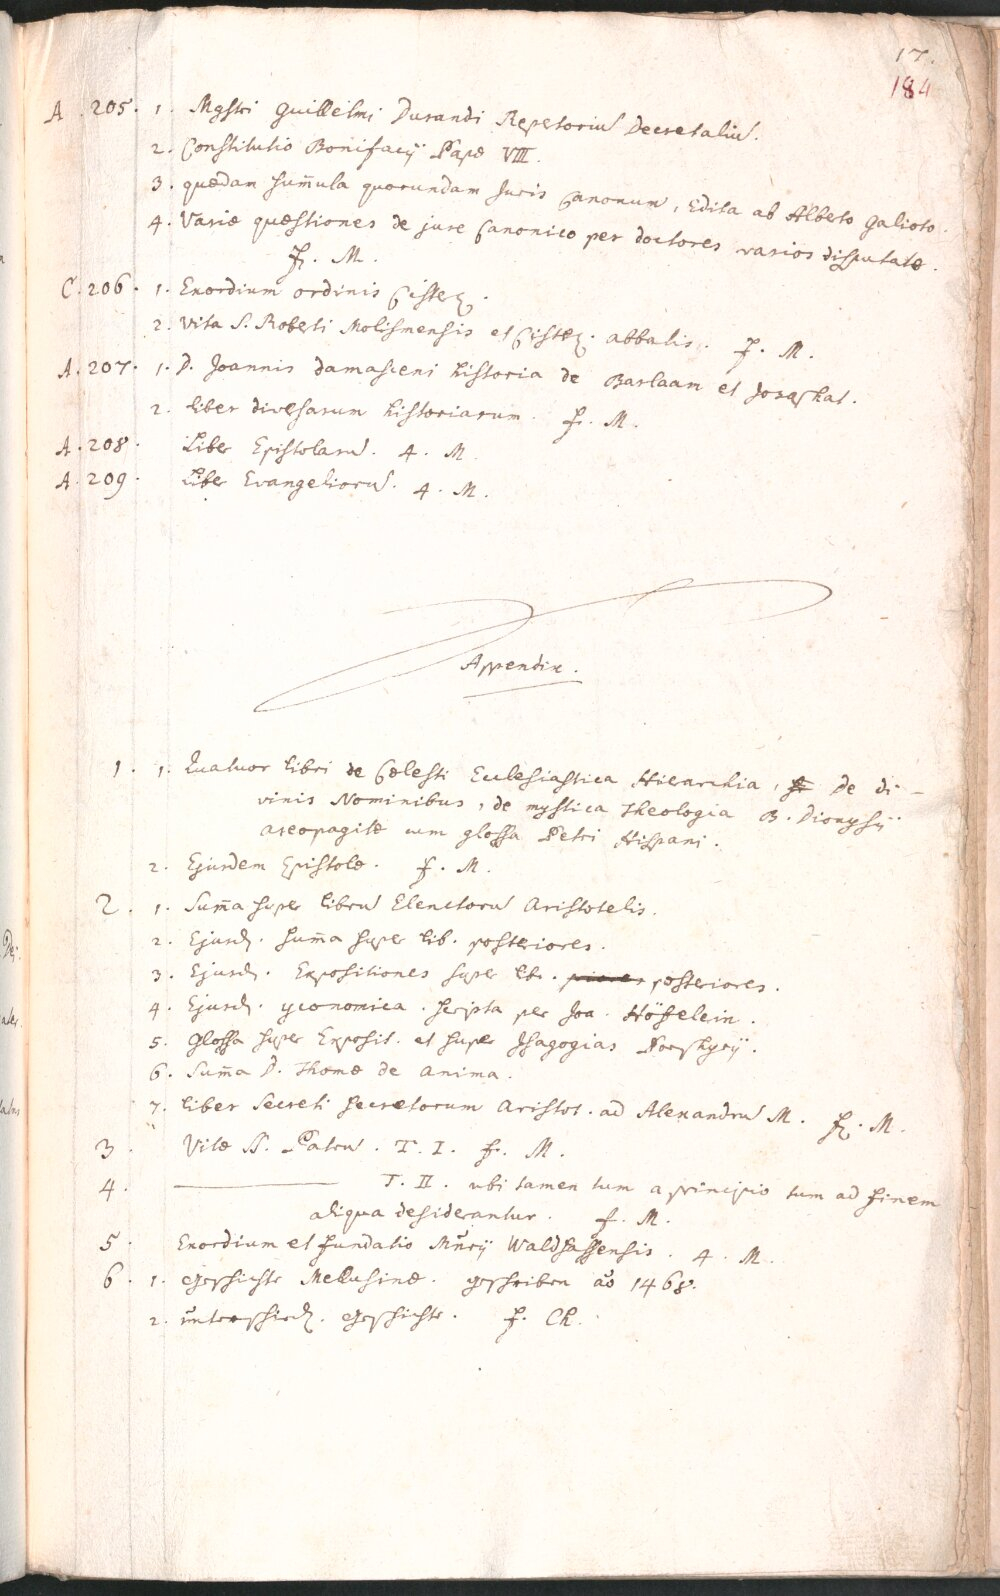 17.
184
A. 205. 1. Mgstri Guillelmi Durandi Repetoriū Decretaliū.
2. Constitutio Bonifacÿ Papæ VIII.
3. quædam sum̄ula quorundam Juris Canonum, Edita ab Alberto Galioto.
4. Variæ quæstiones de jure Canonico per doctores varios disputatæ.
f. M.
C. 206. 1. Exordium ordinis Cisterc.
2. Vita S. Roberti Molismensis et Cisterc. abbatis. f. M.
A. 207. 1. D. Joannis damasceni historia de Barlaam et Josaphat.
2. liber diversarum historiarum. f. M.
A. 208. Liber Epistolarū. 4. M.
A. 209. Liber Evangeliorū. 4. M.
Appendix.
1. 1. Quatuor libri de Cœlesti Ecclesiastica Hierarchia, De di-
vinis Nominibus, de mystica Theologia B. Dionysÿ
areopagitæ cum glossa Petri Hispani.
2. Ejusdem Epistolæ. f. M.
2. 1. Sum̄a super librū Elenctorū Aristotelis.
2. Ejusd. sum̄a super lib. posteriores.
3. Ejusd. Expositiones super lib. priores posteriores.
4. Ejusd. yconomica. scripta per Joa. Höfelein.
5. Glossa super Exposit. et super Isagogias Porphyrÿ.
6. Sum̄a D. Thomæ de Anima.
7. liber Secreti secretorum Aristot. ad Alexandrū M. f. M.
3. Vitæ SS. Patrū. T. I. f. M.
4. ——— T. II. ubi tamen tum a principio tum ad finem
aliqua desiderantur. f. M.
5. Exordium et fundatio Mn̄rÿ Waldsassensis. 4. M.
6. 1. Geschichte Mellusinæ. geschriben aō 1468.
2. unterschied. Geschichte. f. Ch.
Dei.